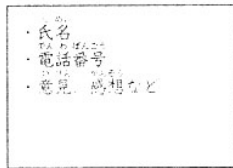 ・氏名
・電話番号
・意見、感想など